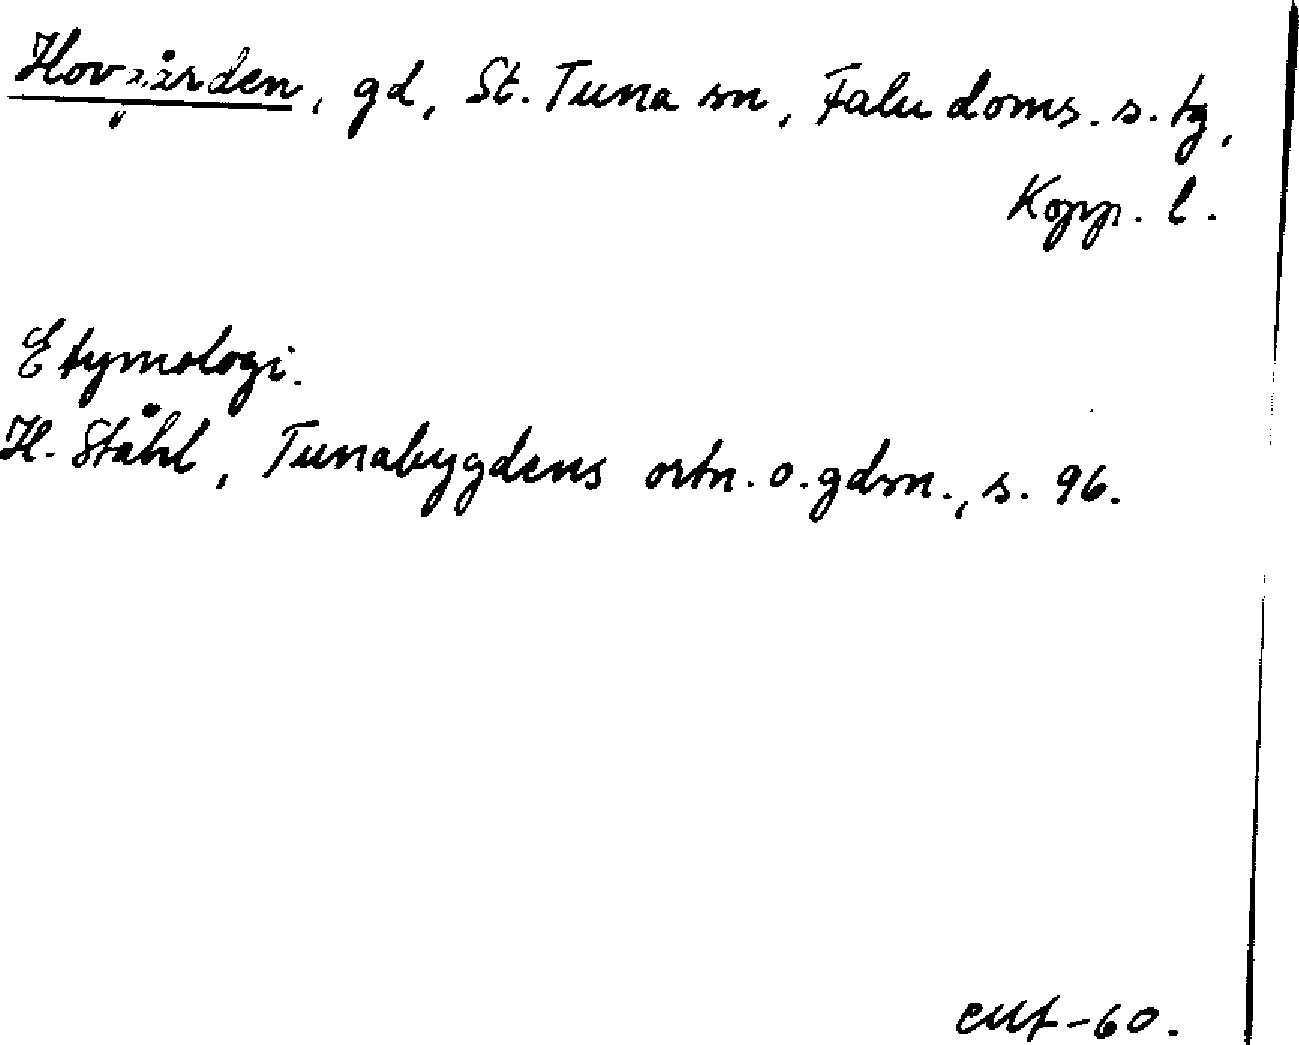 Hovgården, gd, St. Tuna sn, Falu doms. s. tg,
Kopp. l.
Etymologi.
H. Ståhl, Tunabygdens ortn. o. gdsn., s. 96.
-60.